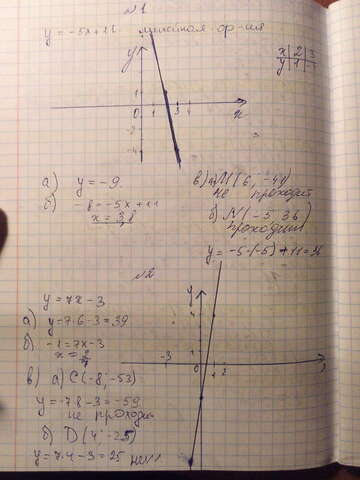 №1
y = -5x+11 линейная ф-ия
x | 2 | 3
y | 1 | -4
y
1
1 3 4
-2
-4
x
а) y = -9
б) -8 = -5x+11
x = 3,8
в) а) M(6; -41)
не проходит
б) N(-5 36)
проходит
y = -5·(-5)+11 = 36
№2
y = 7x-3
а) y = 7·6-3 = 39
б) -1 = 7x-3
x = 2/7
в) а) C(-8; -53)
y = -7·8-3 = -59
не проходит
б) D(4; -25)
y = 7·4-3 = 25 нет
y
-3 0 1 2